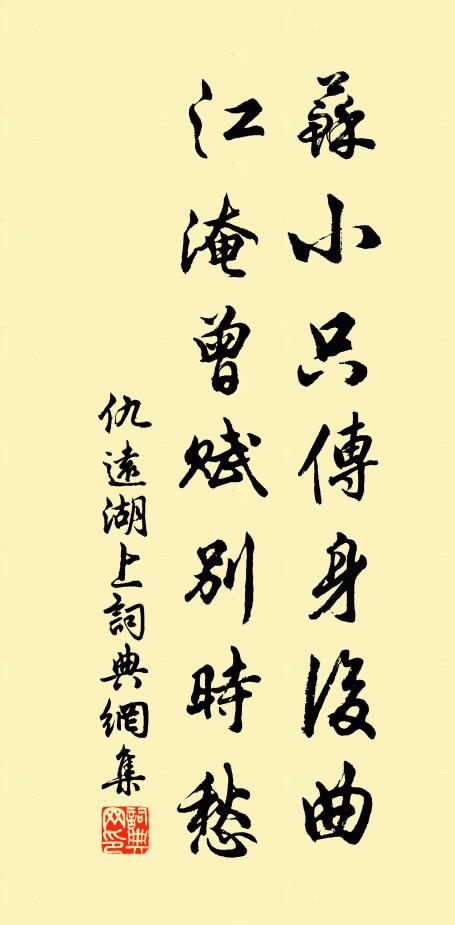 蘇小只傳身後曲
江淹曾賦別時愁
仇遠湖上詞典網集
詞典網印